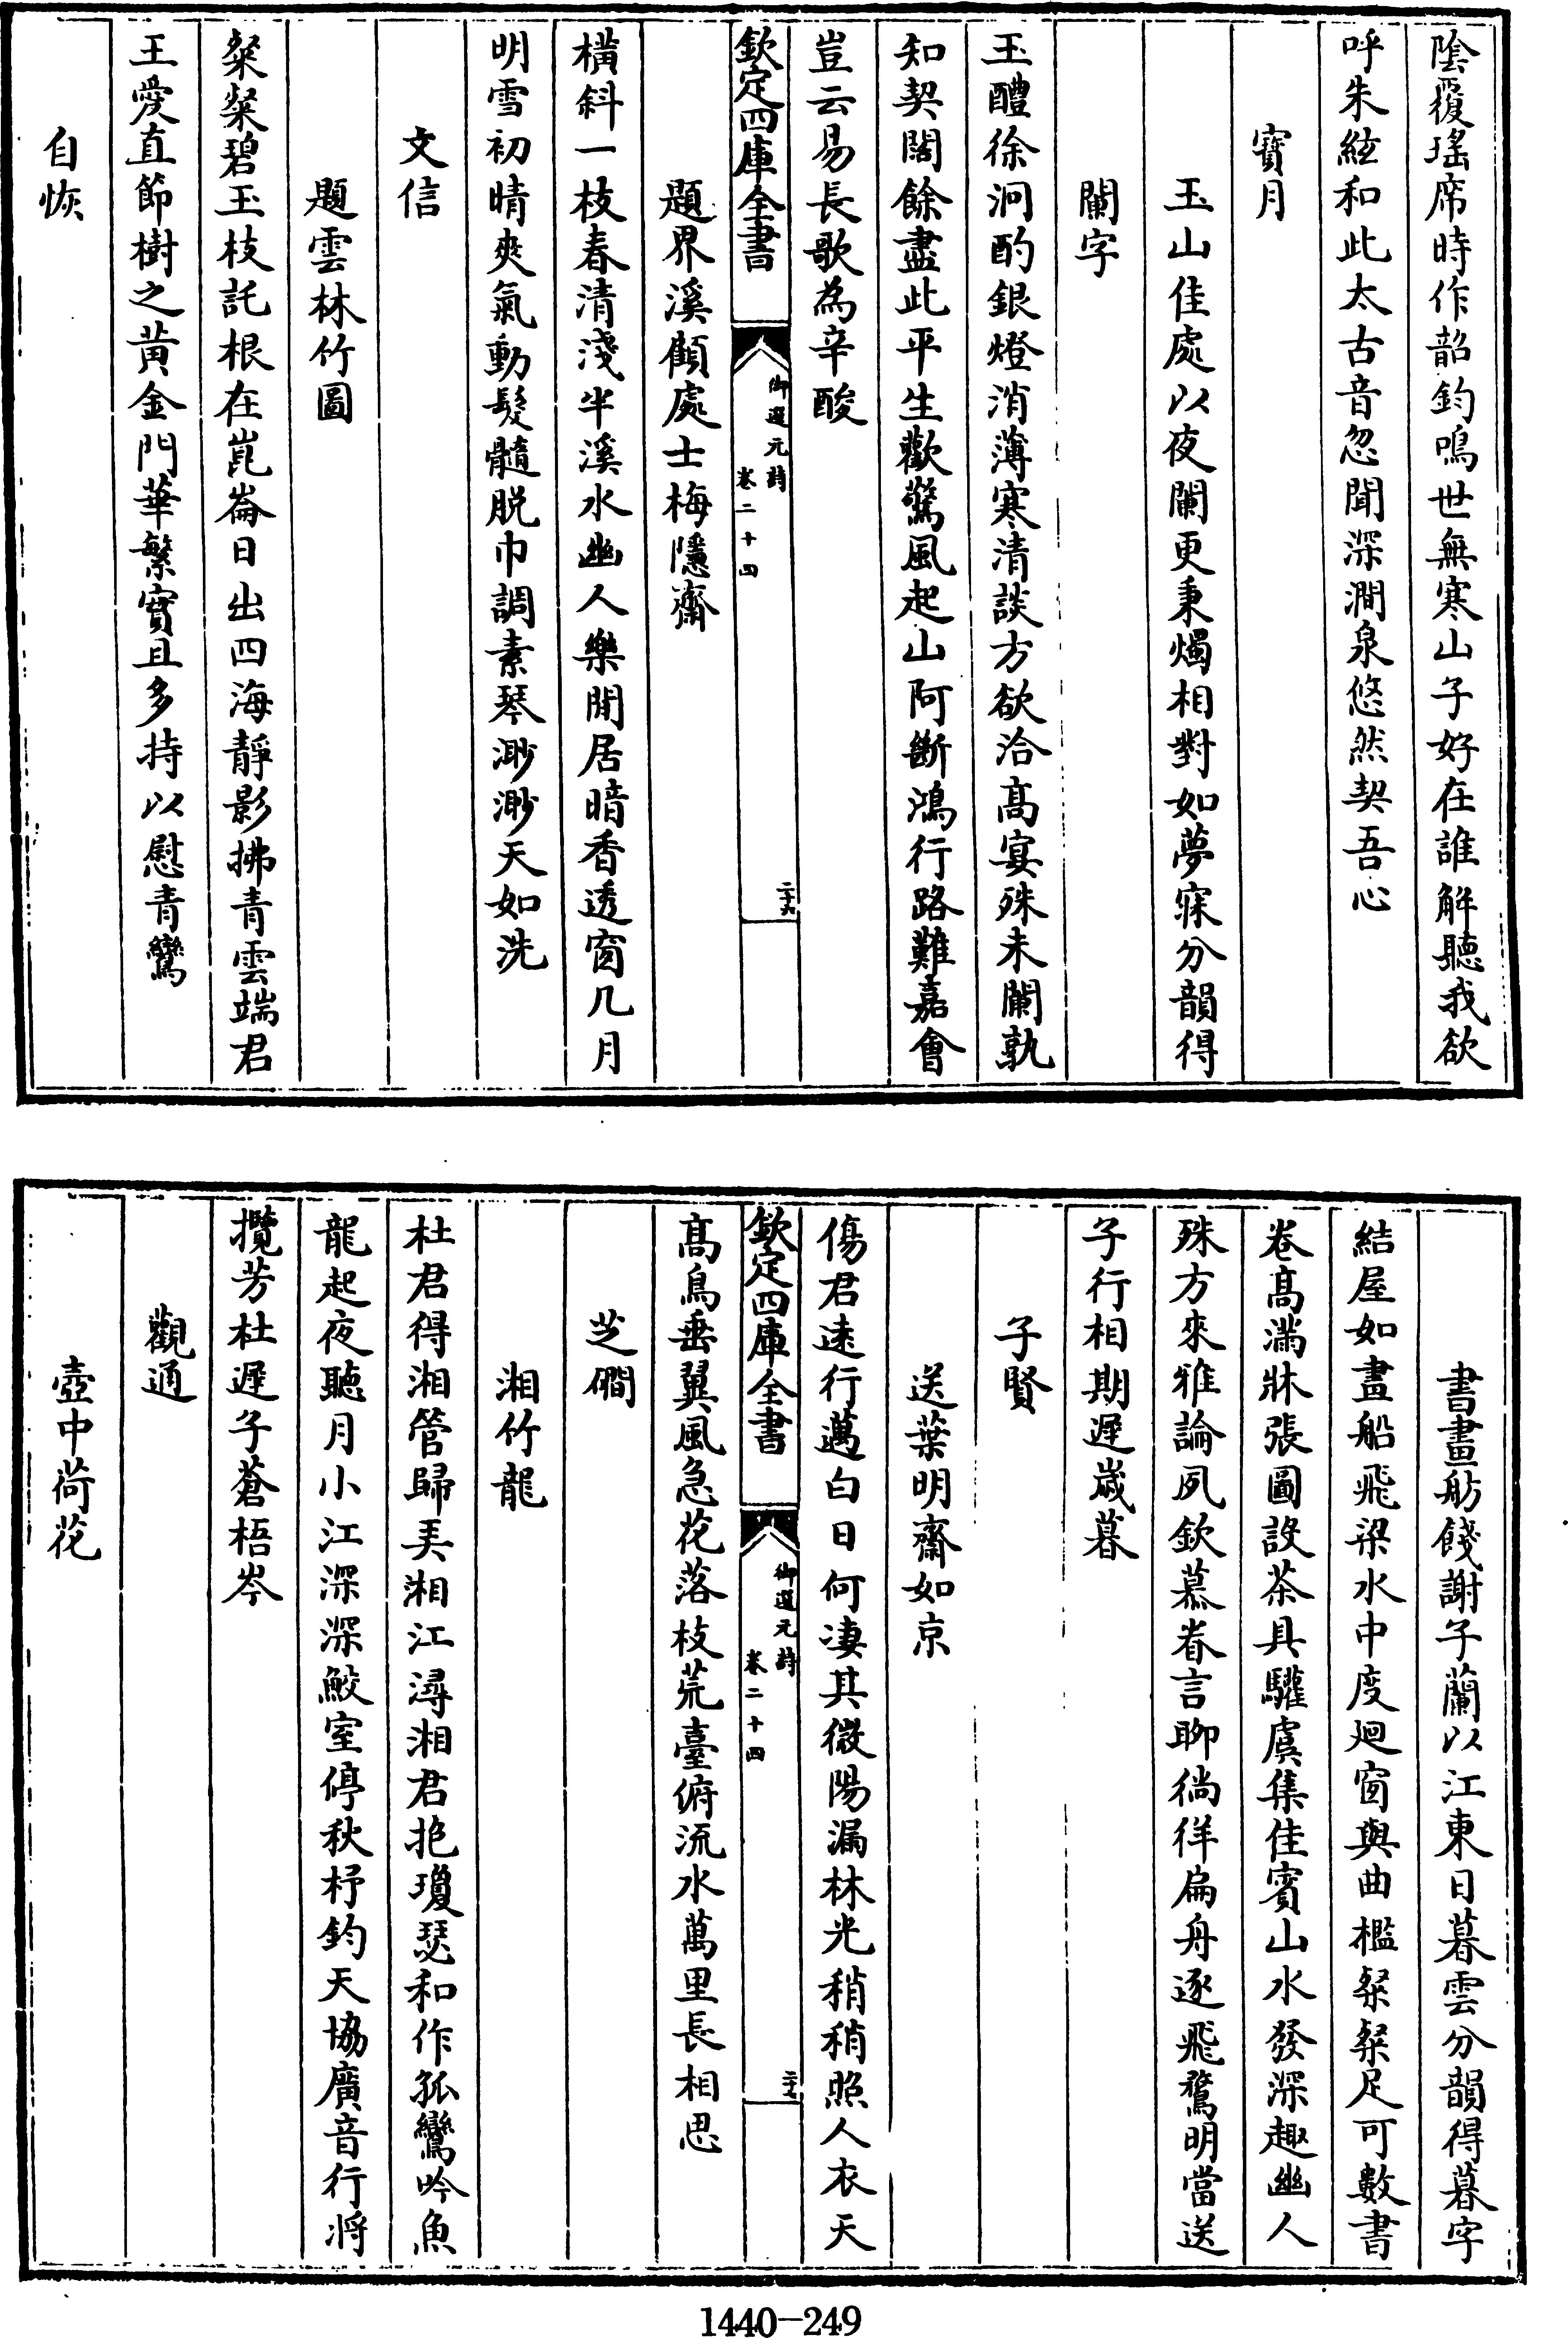 陰覆瑤席時作韶鈞鳴世無寒山子好在誰解聽我欲
呼朱絃和此太古音忽聞深澗泉悠然契吾心
寶月
玉山佳處以夜闌更秉燭相對如夢寐分韻得
闌字
玉醴徐泂酌銀燈消薄寒清談方欲洽髙宴殊未闌孰
知契闊餘盡此平生歡驚風起山阿斷鴻行路難嘉會
豈云易長歌為辛酸
欽定四庫全書
御選元詩
卷二十四
二十六
題界溪顧處士梅隱齋
橫斜一枝春清淺半溪水幽人樂閒居暗香透窗几月
明雪初晴爽氣動髮髓脱巾調素琴渺渺天如洗
文信
題雲林竹圖
粲粲碧玉枝託根在崑崙日出四海靜影拂青雲端君
王愛直節樹之黄金門華繁實且多持以慰青鸞
自恢
書畫舫餞謝子蘭以江東日暮雲分韻得暮字
結屋如畫船飛梁水中度廻窗與曲檻粲粲足可數書
卷髙滿牀張圖設茶具驩虞集佳賓山水發深趣幽人
殊方來雅論夙欽慕眷言聊徜徉扁舟逐飛鶩明當送
子行相期遲歲暮
子賢
送葉明齋如京
傷君遠行邁白日何淒其微陽漏林光稍稍照人衣天
欽定四庫全書
御選元詩
卷二十四
二十七
髙鳥垂翼風急花落枝荒臺俯流水萬里長相思
芝磵
湘竹龍
杜君得湘管歸美湘江潯湘君抱瓊瑟和作孤鸞吟魚
龍起夜聽月小江深深鮫室停秋杼鈞天協廣音行將
攬芳杜遲子蒼梧岑
觀通
壺中荷花
1440-249